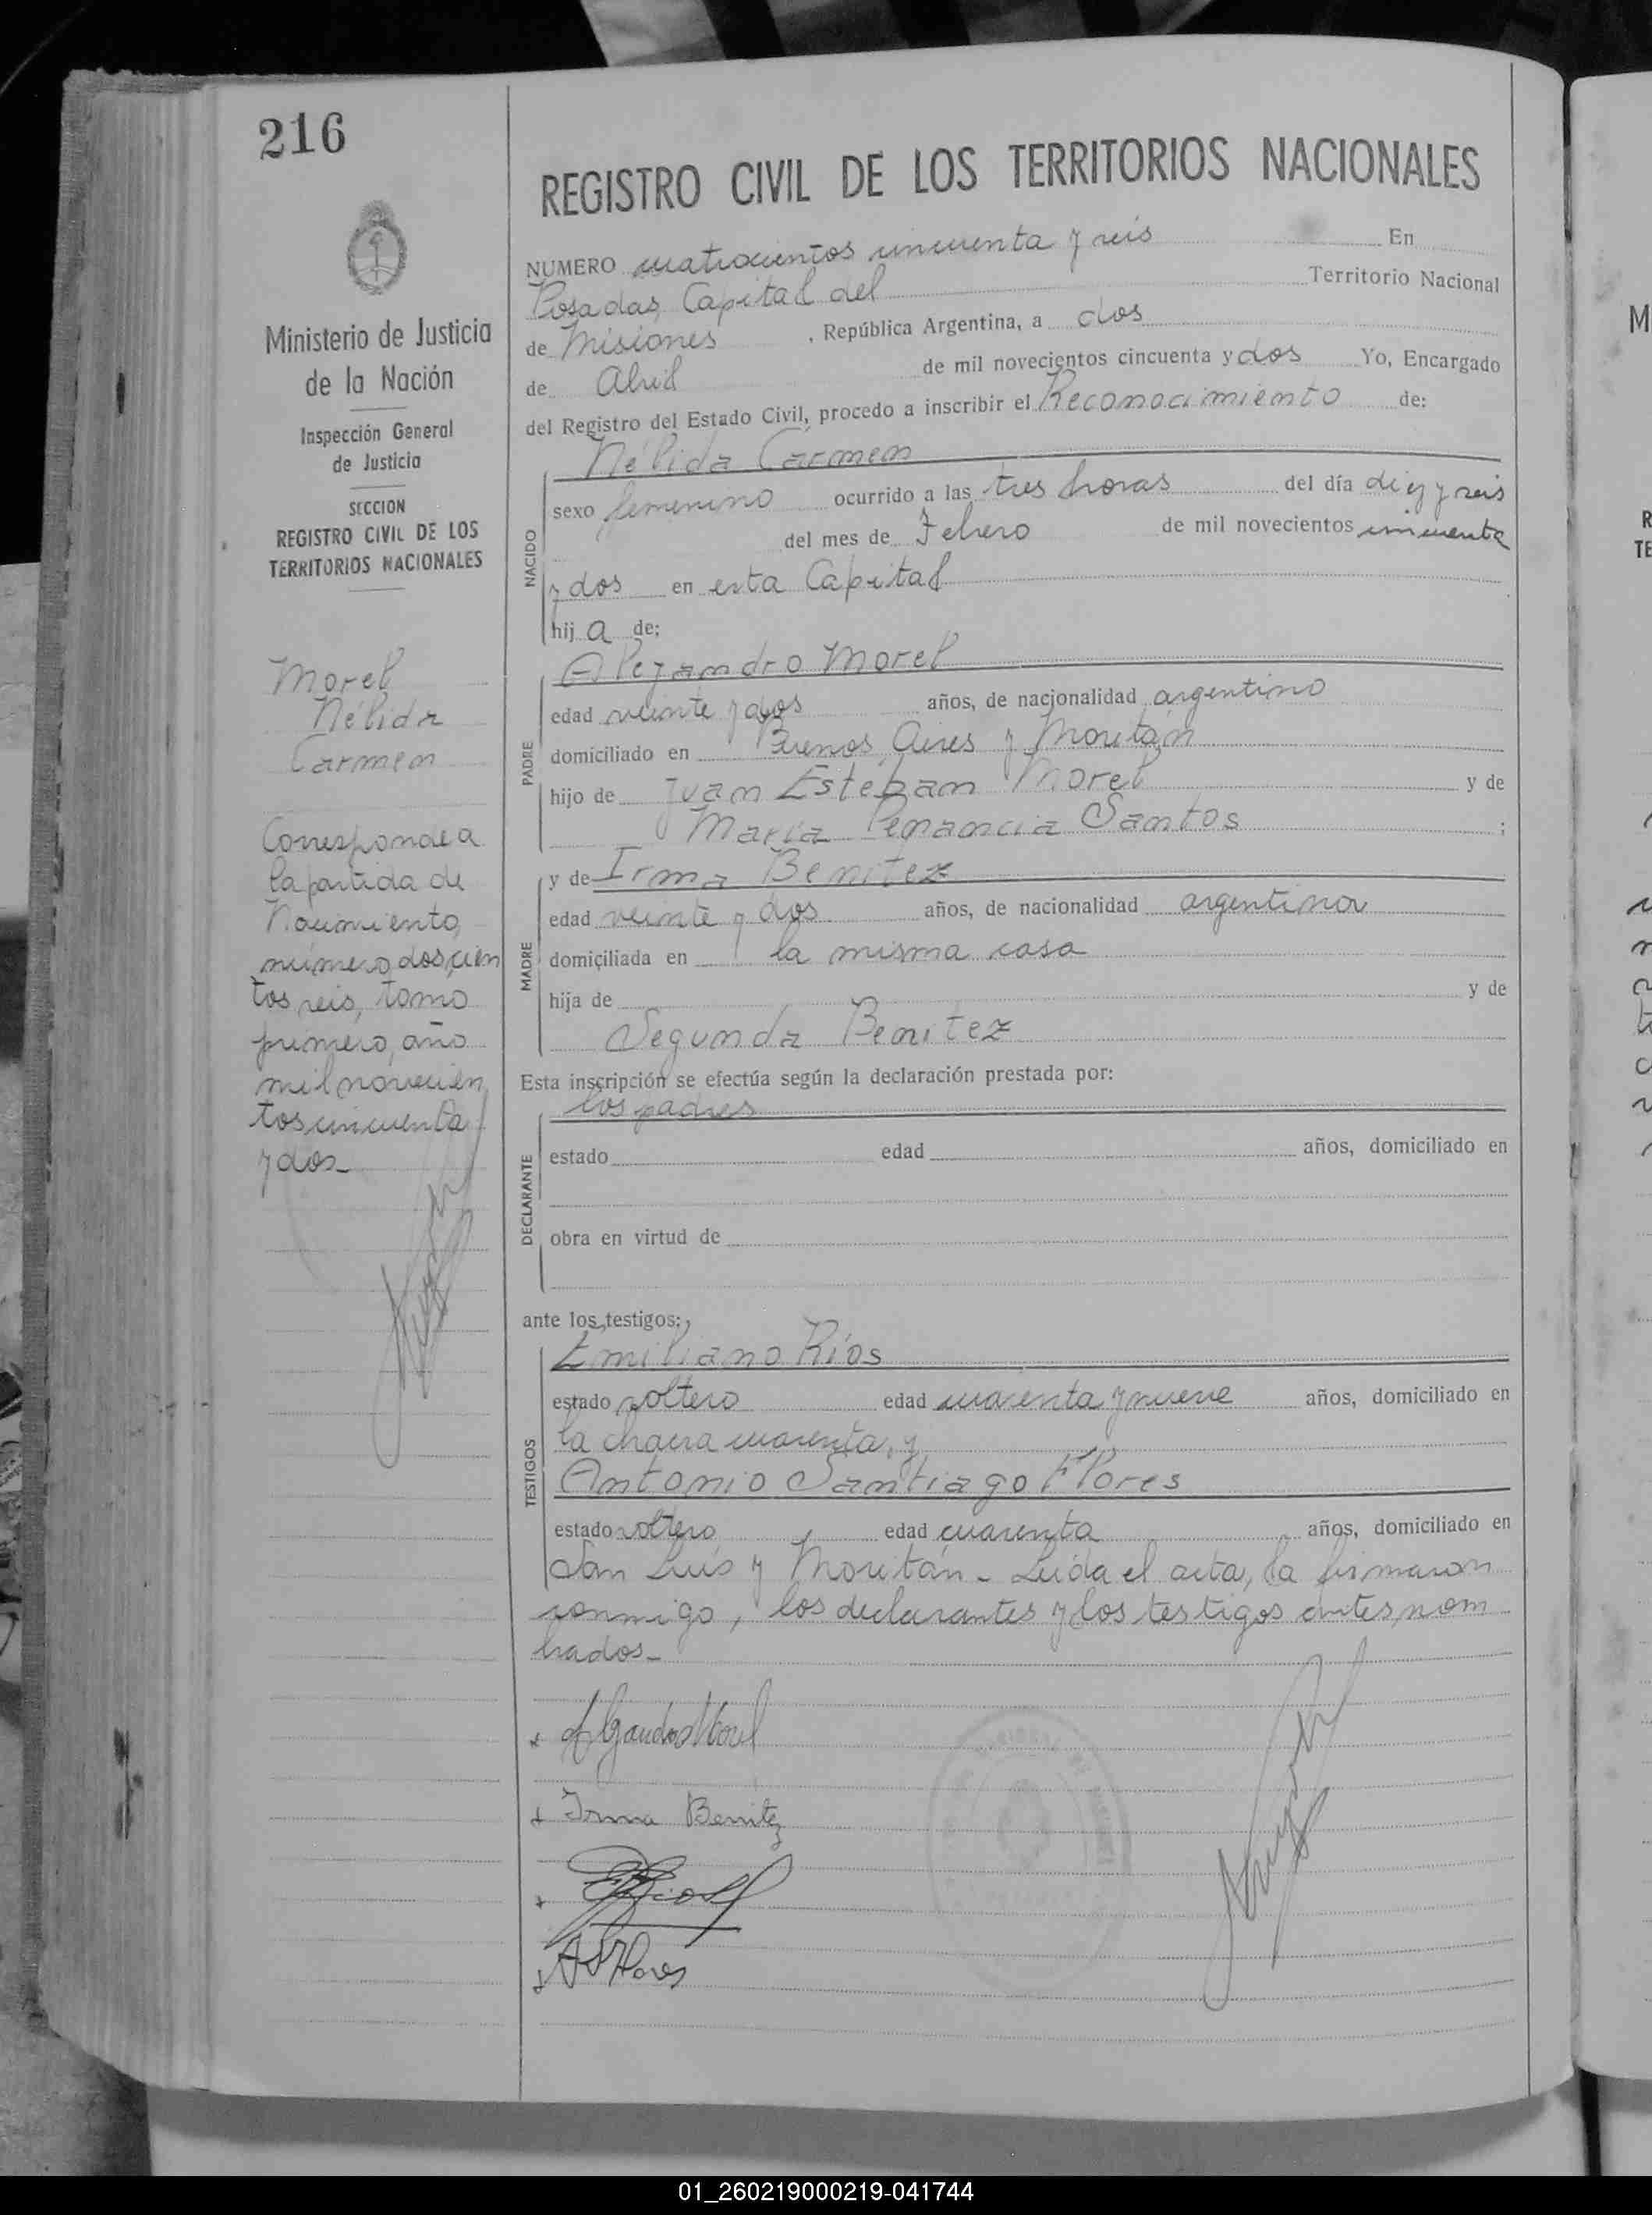 216
Ministerio de Justicia
de la Nación
Inspección General
de Justicia
SECCION
REGISTRO CIVIL DE LOS
TERRITORIOS NACIONALES
Morel
Nélida
Carmen
Corresponde a
la partida de
Nacimiento,
número doscien
tos seis, tomo
primero, año
mil novecien
tos cincuenta
y dos_
REGISTRO CIVIL DE LOS TERRITORIOS NACIONALES
NUMERO cuatrocientos cincuenta y seis En
Posadas, Capital del Territorio Nacional
de Misiones , República Argentina, a dos
de Abril de mil novecientos cincuenta y dos Yo, Encargado
del Registro del Estado Civil, procedo a inscribir el Reconocimiento de:
Nélida Carmen
NACIDO
sexo femenino ocurrido a las tres horas del día diez y seis
del mes de Febrero de mil novecientos cincuenta
y dos en esta Capital
hij a de;
Alejandro Morel
PADRE
edad veinte y dos años, de nacionalidad argentino
domiciliado en Buenos Aires y Moritán
hijo de Juan Esteban Morel y de
María Santos ;
MADRE
y de Irma Benitez
edad veinte y dos años, de nacionalidad argentina
domiciliada en la misma casa
hija de y de
Segunda Benitez
Esta inscripción se efectúa según la declaración prestada por:
los padres
DECLARANTE
estado edad años, domiciliado en
obra en virtud de
ante los testigos:
Emiliano Ríos
TESTIGOS
estado soltero edad cuarenta y nueve años, domiciliado en
la chacra cuarenta, y
Antonio Santiago Flores
estado soltero edad cuarenta años, domiciliado en
San Luis y Moritán_ Leída el acta, la firmaron
conmigo, los declarantes y los testigos antes nom
brados_
Irma Benitez
A S Flores
01_260219000219-041744